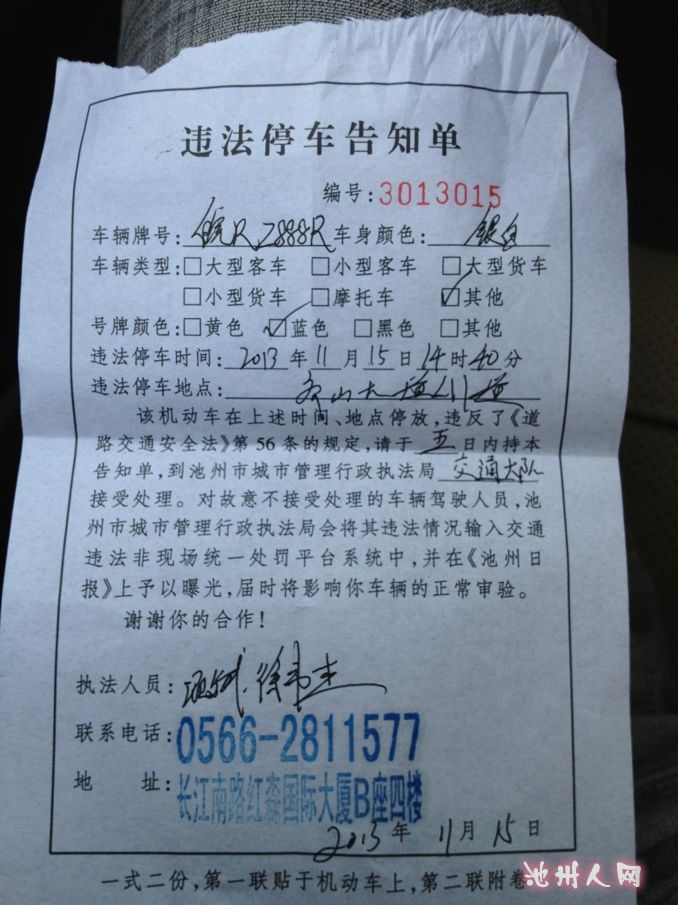 违法停车告知单
编号:3013015
车辆牌号:皖RZ888R车身颜色:银白
车辆类型:□大型客车 □小型客车 □大型货车
□小型货车 □摩托车 ☑其他
号牌颜色:□黄色 ☑蓝色 □黑色 □其他
违法停车时间:2013年11月15日14时40分
违法停车地点:
该机动车在上述时间、地点停放,违反了《道
路交通安全法》第56条的规定,请于五日内持本
告知单,到池州市城市管理行政执法局交通大队
接受处理。对故意不接受处理的车辆驾驶人员,池
州市城市管理行政执法局会将其违法情况输入交通
违法非现场统一处罚平台系统中,并在《池州日
报》上予以曝光,届时将影响你车辆的正常审验。
谢谢你的合作!
执法人员:
联系电话:0566-2811577
地 址:长江南路红森国际大厦B座四楼
2013年11月15日
一式二份,第一联贴于机动车上,第二联附卷
池州人网